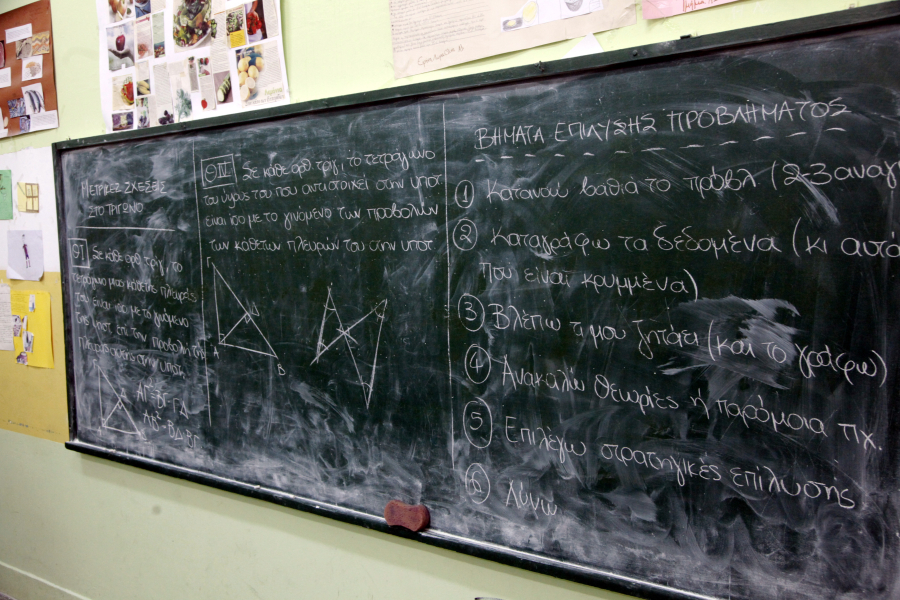 ΜΕΤΡΙΚΕΣ ΣΧΕΣΕΙΣ
ΣΤΟ ΤΡΙΓΩΝΟ
ΘΙ Σε κάθε ορθ τρίγ, το
τετράγωνο μιας κάθετης πλευράς
του είναι ίσο με το γινόμενο
της υποτ. επί την προβολή της
πλευράς αυτής στην υποτ.
ΑΓ²=ΒΓ·ΓΔ
ΑΒ²=ΒΔ·ΒΓ
ΘΙΙΙ Σε κάθε ορθ τρίγ, το τετράγωνο
του ύψους του που αντιστοιχεί στην υποτ
είναι ίσο με το γινόμενο των προβολών
των κάθετων πλευρών του στην υποτ.
Α
Β
ΒΗΜΑΤΑ ΕΠΙΛΥΣΗΣ ΠΡΟΒΛΗΜΑΤΟΣ
1 Κατανοώ βαθιά το πρόβλ (2-3 αναγ
2 Καταγράφω τα δεδομένα (κι αυτά
που είναι κρυμμένα)
3 Βλέπω τι μου ζητάει (και το γράφω)
4 Ανακαλώ θεωρίες ή παρόμοια πχ.
5 Επιλέγω στρατηγικές επίλυσης
6 Λύνω